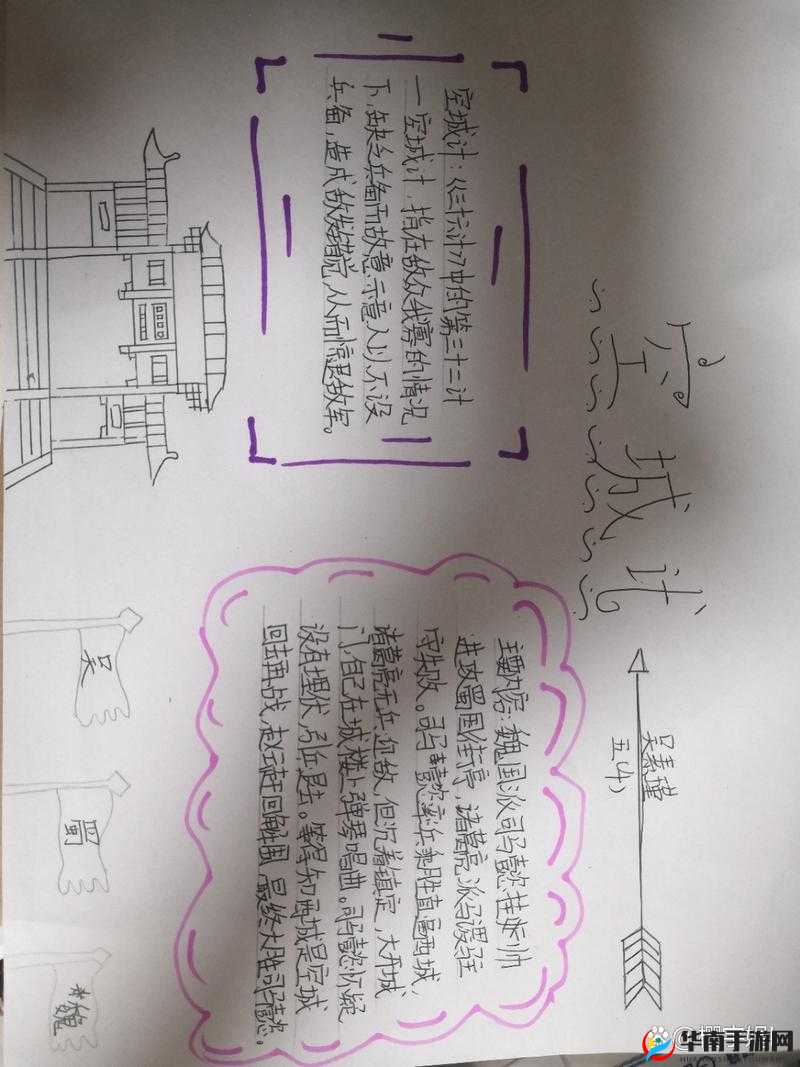 空城计
五(4)
空城计:《三十六计》中的第三十二计
—空城计,指在敌众我寡的情况
下,缺乏兵备而故意示意人以不设
兵备,造成敌方错觉,从而惊退敌军。
主要内容:魏国派司马懿挂帅
进攻蜀国街亭,诸葛亮派马谡驻
守失败。司马懿率兵乘胜直逼西城,
诸葛亮无兵迎敌,但沉着镇定,大开城
门,自己在城楼上弹琴唱曲。司马懿怀疑
没有埋伏,引兵退去。等得知西城是空城
回去再战,赵云赶回解围,最终大胜司马懿。
吴
蜀
魏
华南手游网
HUANANSHOUYOUWANG